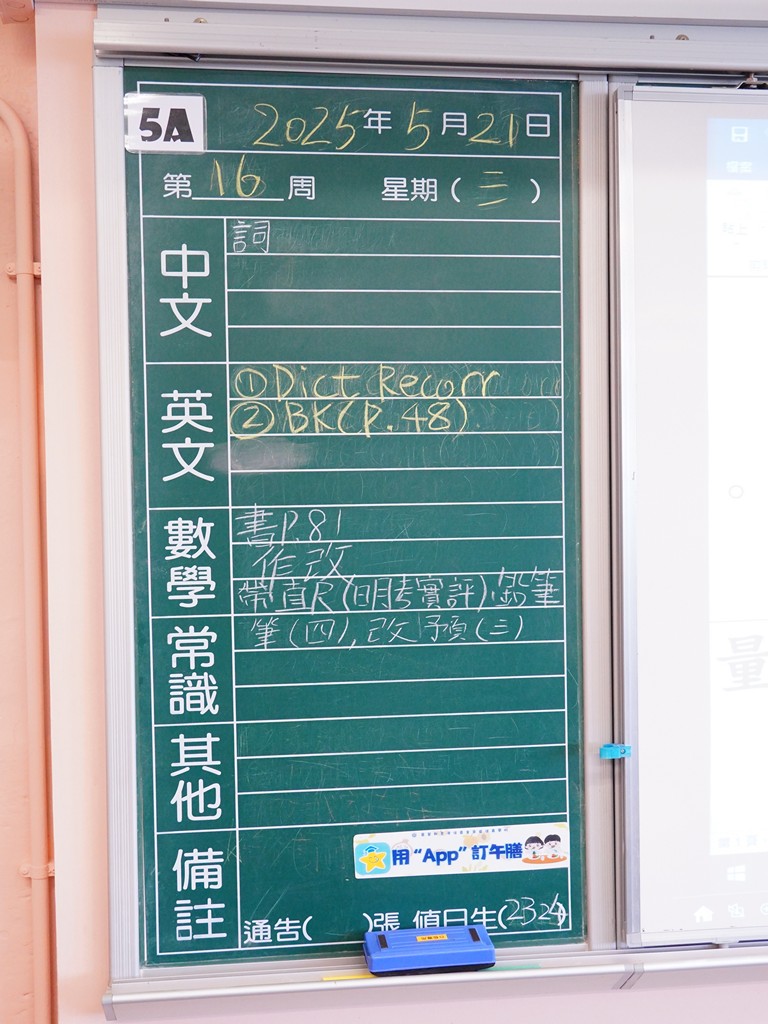 5A
2025年5月21日
第16周 星期(三)
中文
詞
英文
①Dict Recorr
②BK(P.48)
數學
書P.81
作改
帶直尺(明考實評)鉛筆
常識
筆(四),改預(三)
其他
備註
用“App”訂午膳
通告( )張 值日生(2324)
量